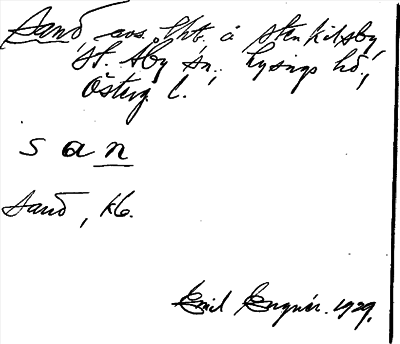 Sand, avs. lht. å Stenkilsby
St. Åby sn., Lysings hd.,
Österg. l.
san
Sand, kb.
Emil 1929.